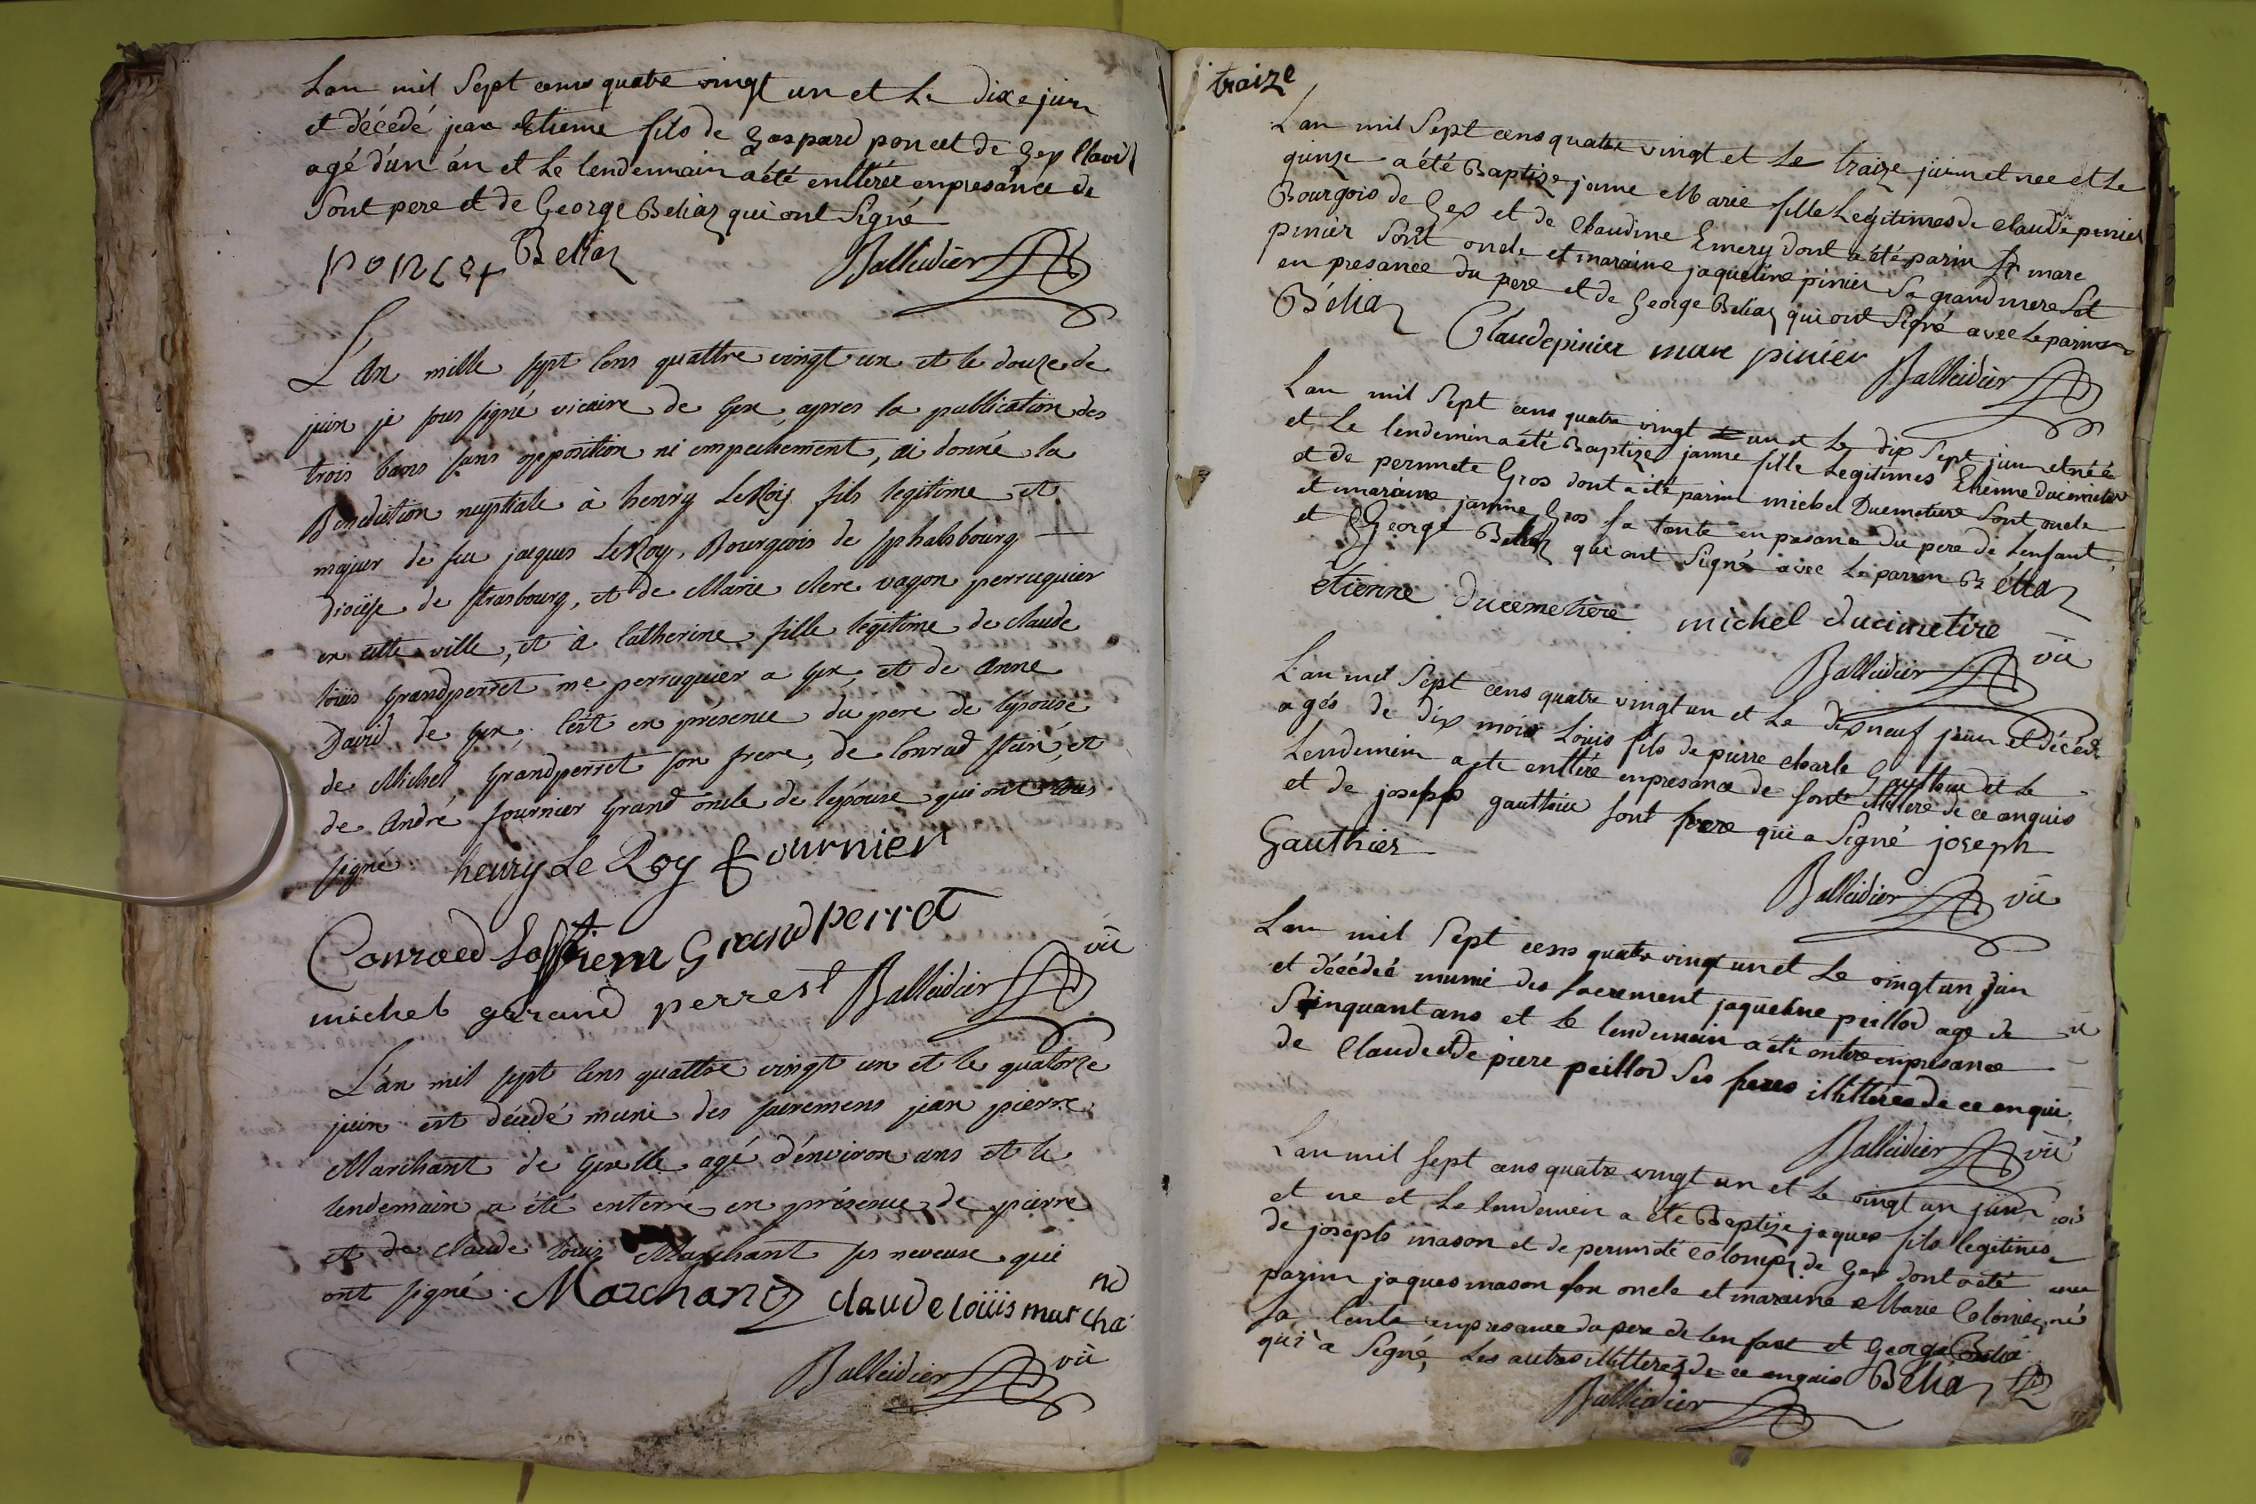 Lan mil Sept cens quatre vingt un et Le dix e juin
et décédé jean Etienne fils de Gaspard poncet de Gex
agé d'un ân et Le lendemain a été entterer en presance de
Sont pere et de George Beliaz qui ont Signé
poncet Beliaz Balleidier
L'An mille sept cens quattre vingt un et le douze de
juin je sous signé vicaire de Gex, apres la publication des
trois bans sans opposition ni empechement, ai donné la
Benediction nuptiale à henry LeRoy fils legitime et
majeur de feu jacques LeRoy, Bourgeois de phalsbourg
diocèse de strasbourg, et de Marie clere vagon perruquier
en cette ville, et à Catherine fille legitime de claude
loüis Grandperret me perruquier a Gex et de Anne
David de Gex; c'est en présence du pere de l'épouse
de Michel Grandperret son frere, de Conrad et
de André fournier Grand oncle de l'épouse qui ont tous
signé henry Le Roy fournier
Conraed Grandperret
michel gerand perrest Balleidier vü
L'an mil sept cens quattre vingt un et le quatorze
juin est décédé muni des sacremens jean pierre
Marchant de Gexelle agé d'environ ans et le
lendemain a été enterré en présence de pierre
et de claude loüis Marchant ses neveux qui
ont signé. Marchand claude loüis marchand
Balleidier vü
traize
Lan mil Sept cens quatre vingt et Le traize juin et nee et Le
quinze a été Baptize janne Marie fille Legitimes de claude pinier
Bourgois de Gex et de Claudine Emery dont a été parin Sr marc
pinier Sont oncle et maraine jaqueline pinier Sa grand mere
en presance du pere et de George Beliaz qui ont Signé avec Le parin
Béliaz Claude pinier marc pinier Balleidier
Lan mil Sept cens quatre vingt un et Le dix Sept juin et née
et Le lendemin a été Baptizer janne fille Legitimes Etienne ducimetier
et de pernnete Gros dont a été parin michel Ducimetiere Sont oncle
et maraine janne Gros Sa tante en presance du pere de Lenfant,
et George Beliaz qui ont Signé avec Le parin Béliaz
étienne ducimetiere michel ducimetire
Balleidier vü
Lan mil Sept cens quatre vingt un et Le dix neuf juin et décédé
agés de dix mois Louis fils de pierre charle Gautheir et Le
Lendemein a été entteré en presance de Sont illiteré de ce enquis
et de joseph gautheir Sont frere qui a Signé joseph
Gauthier
Balleidier vü
Lan mil Sept cens quatre vingt un et Le vingt un juin
et décédeé munie des Sacrement jaqueline peillod age de
Sinquant ans et le lendemain a été entere en presance
de Claude et de piere peillod Ses freres illitteres de ce enqui
Balleidier vü
Lan mil Sept cens quatre vingt un et Le vingt un juin
et ne et Le lendemein a ete Baptize jaques fils legitimes
de joseph mason et de pernnete Colomp de Gex dont a été
parin jaques mason Son oncle et maraine Marie Colomp
Sa tante en presance du pere de lenfant et George Belia
qui a Signé, Les autres illitteres de ce enquis Béliaz
Balleidier